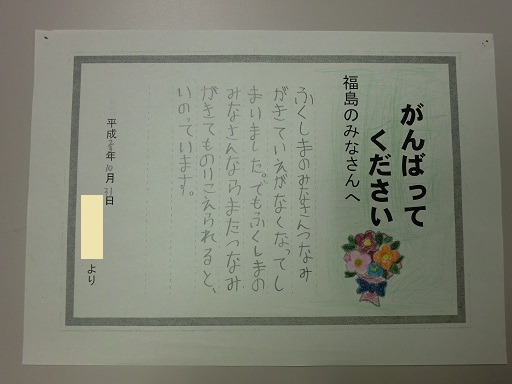 がんばって
ください
福島のみなさんへ
ふくしまのみなさんつなみ
がきていえがなくなってし
まいました。でもふくしまの
みなさんならまたつなみ
がきてものりこえられると、
いのっています。
平成年10月31日
より